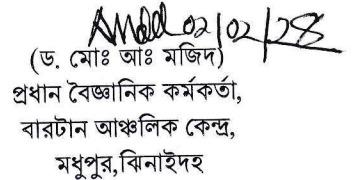 02/02/28
(ড. মোঃ আঃ মজিদ)
প্রধান বৈজ্ঞানিক কর্মকর্তা,
বারটান আঞ্চলিক কেন্দ্র,
মধুপুর,ঝিনাইদহ